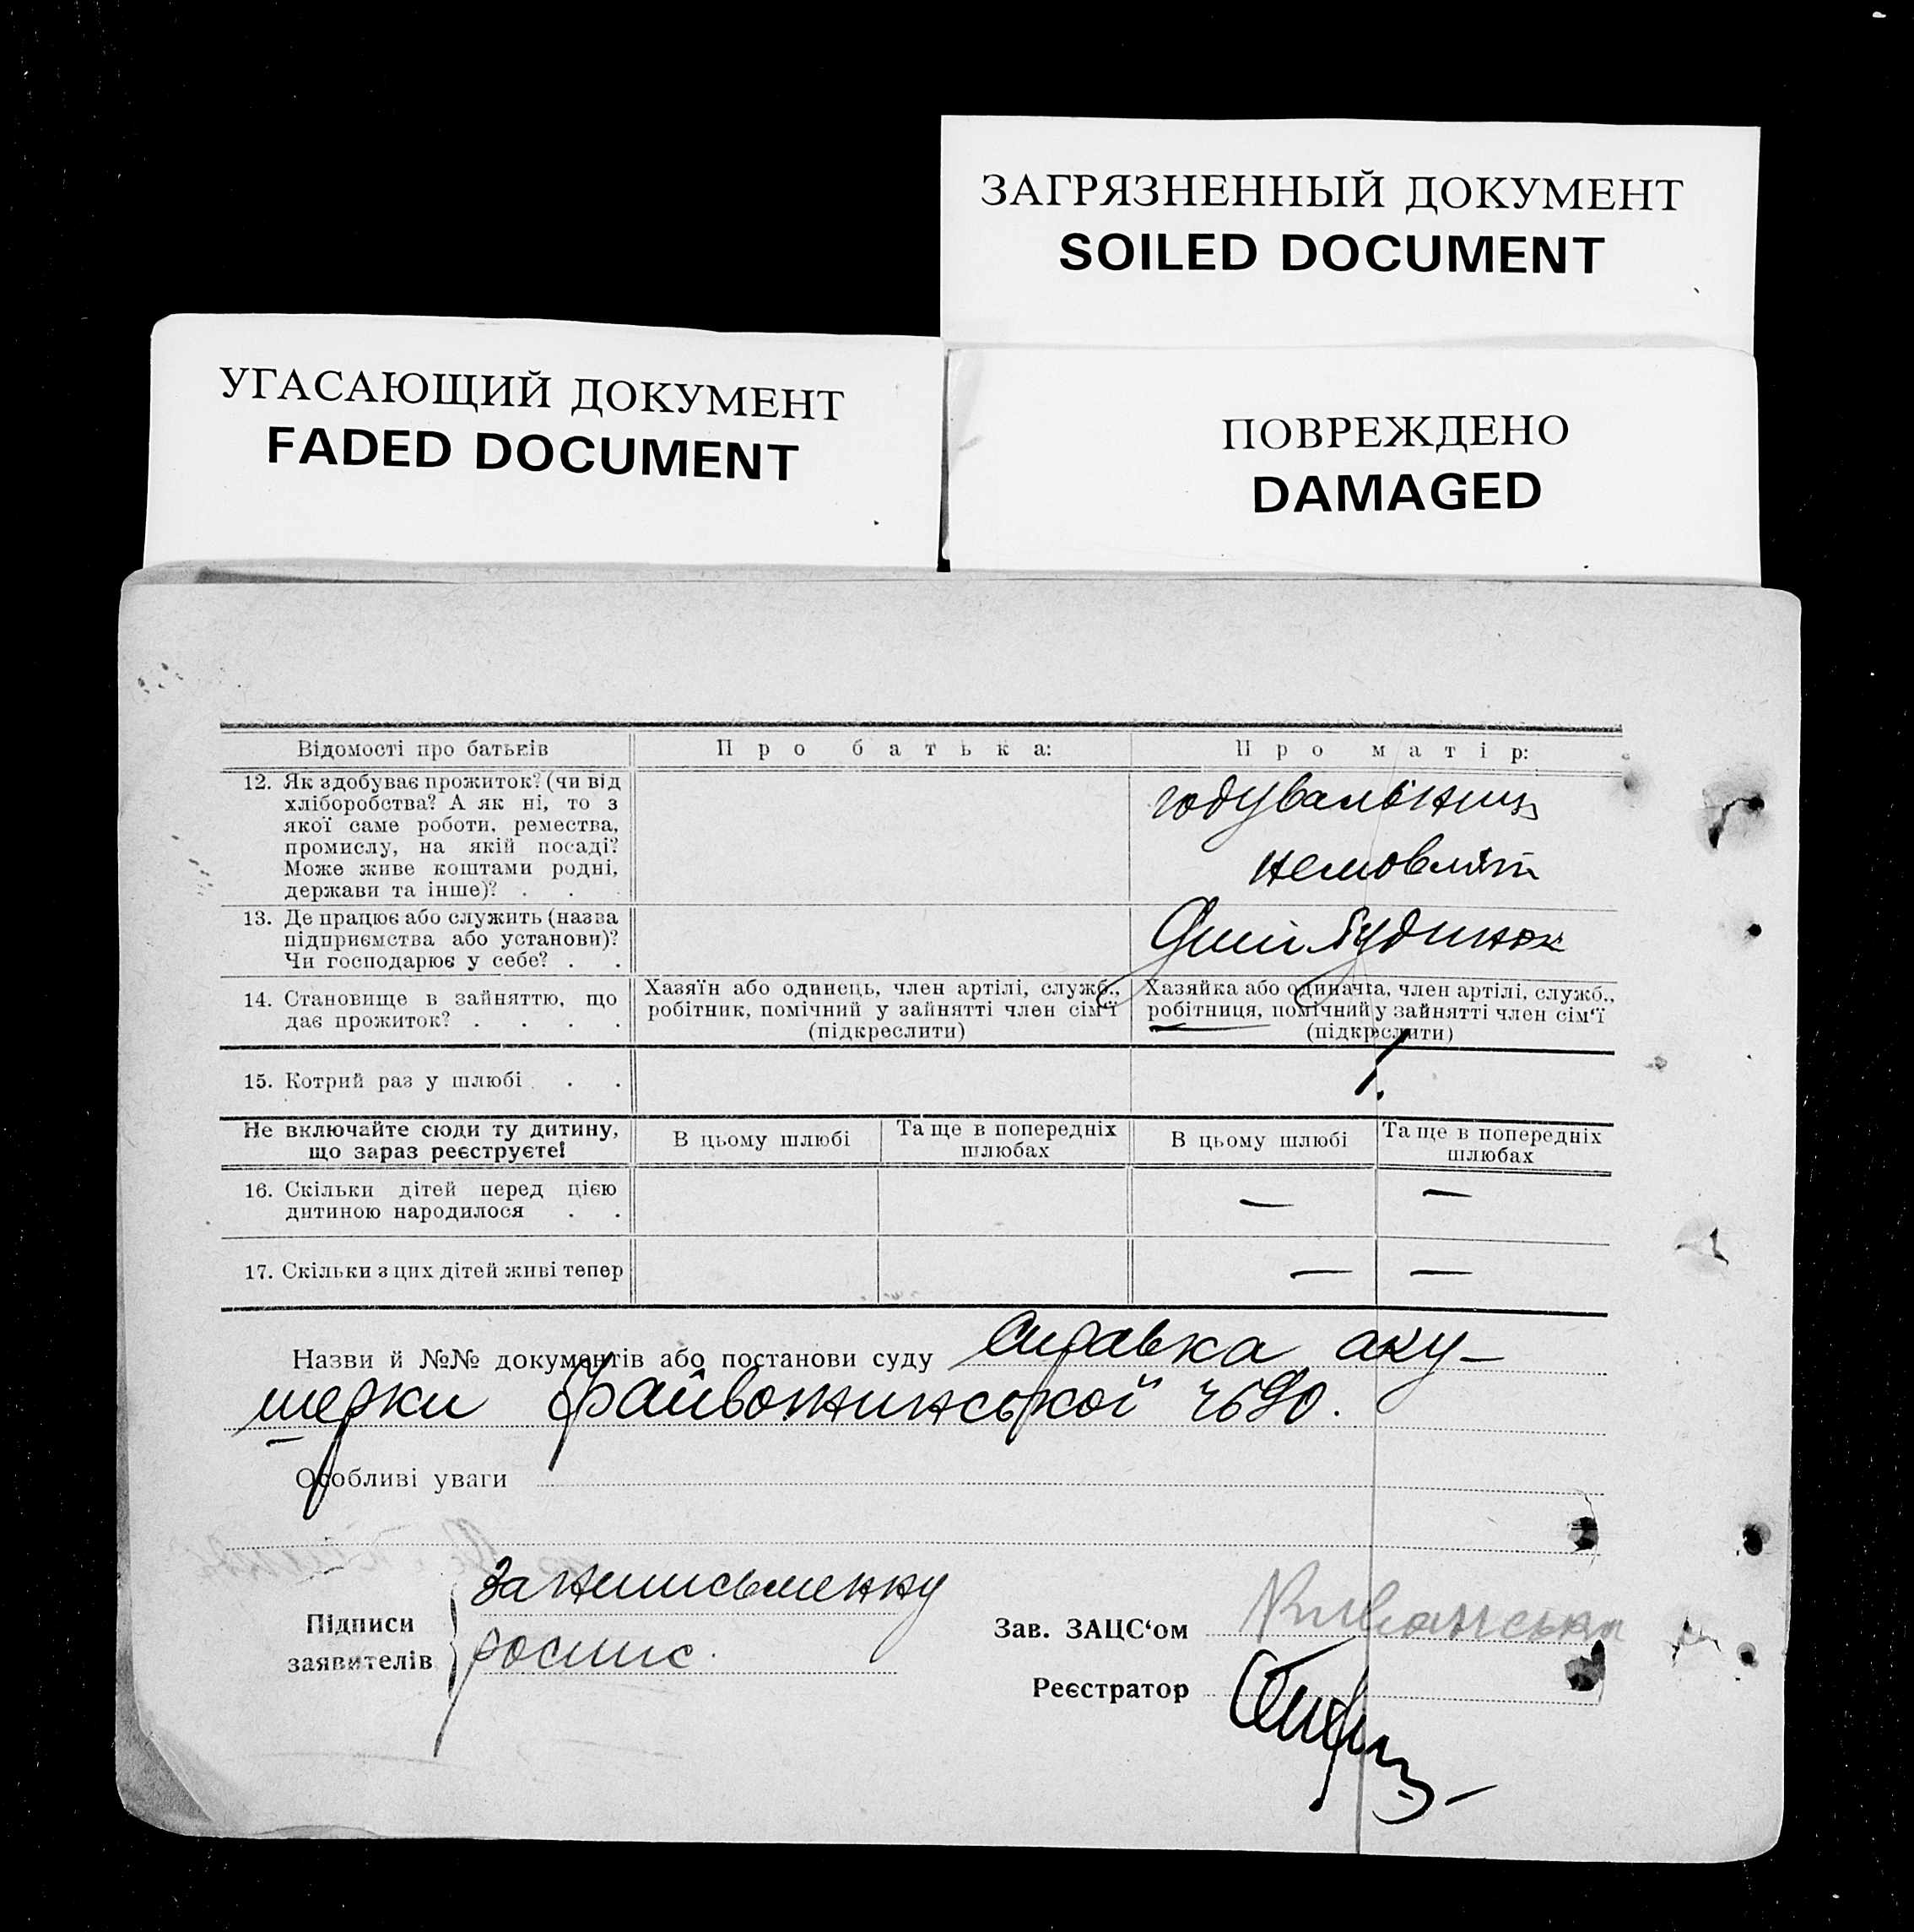 ЗАГРЯЗНЕННЫЙ ДОКУМЕНТ
SOILED DOCUMENT
УГАСАЮЩИЙ ДОКУМЕНТ
FADED DOCUMENT
ПОВРЕЖДЕНО
DAMAGED
Відомості про батьків
Про батька:
Про матір:
12. Як здобуває прожиток? (чи від
хліборобства? А як ні, то з
якої саме роботи, ремества,
промислу, на якій посаді?
Може живе коштами родні,
держави та інше)? . . .
годувальниця
немовлят
13. Де працює або служить (назва
підприємства або установи)?
Чи господарює у себе? . .
будинок
14. Становище в зайняттю, що
дає прожиток? . . . .
Хазяїн або одинець, член артілі, служб.,
робітник, помічний у зайнятті член сім'ї
(підкреслити)
Хазяйка або одиначка, член артілі, служб.,
робітниця, помічний у зайнятті член сім'ї
(підкреслити)
15. Котрий раз у шлюбі . . .
Не включайте сюди ту дитину,
що зараз реєструєте!
В цьому шлюбі
Та ще в попередніх
шлюбах
В цьому шлюбі
Та ще в попередніх
шлюбах
16. Скільки дітей перед цією
дитиною народилося . .
— —
17. Скільки з цих дітей живі тепер
— —
Назви й №№ документів або постанови суду Справка аку-
шерки
Особливі уваги
Підписи
заявителів
За неписьменну
роспис.
Зав. ЗАЦС'ом
Реєстратор